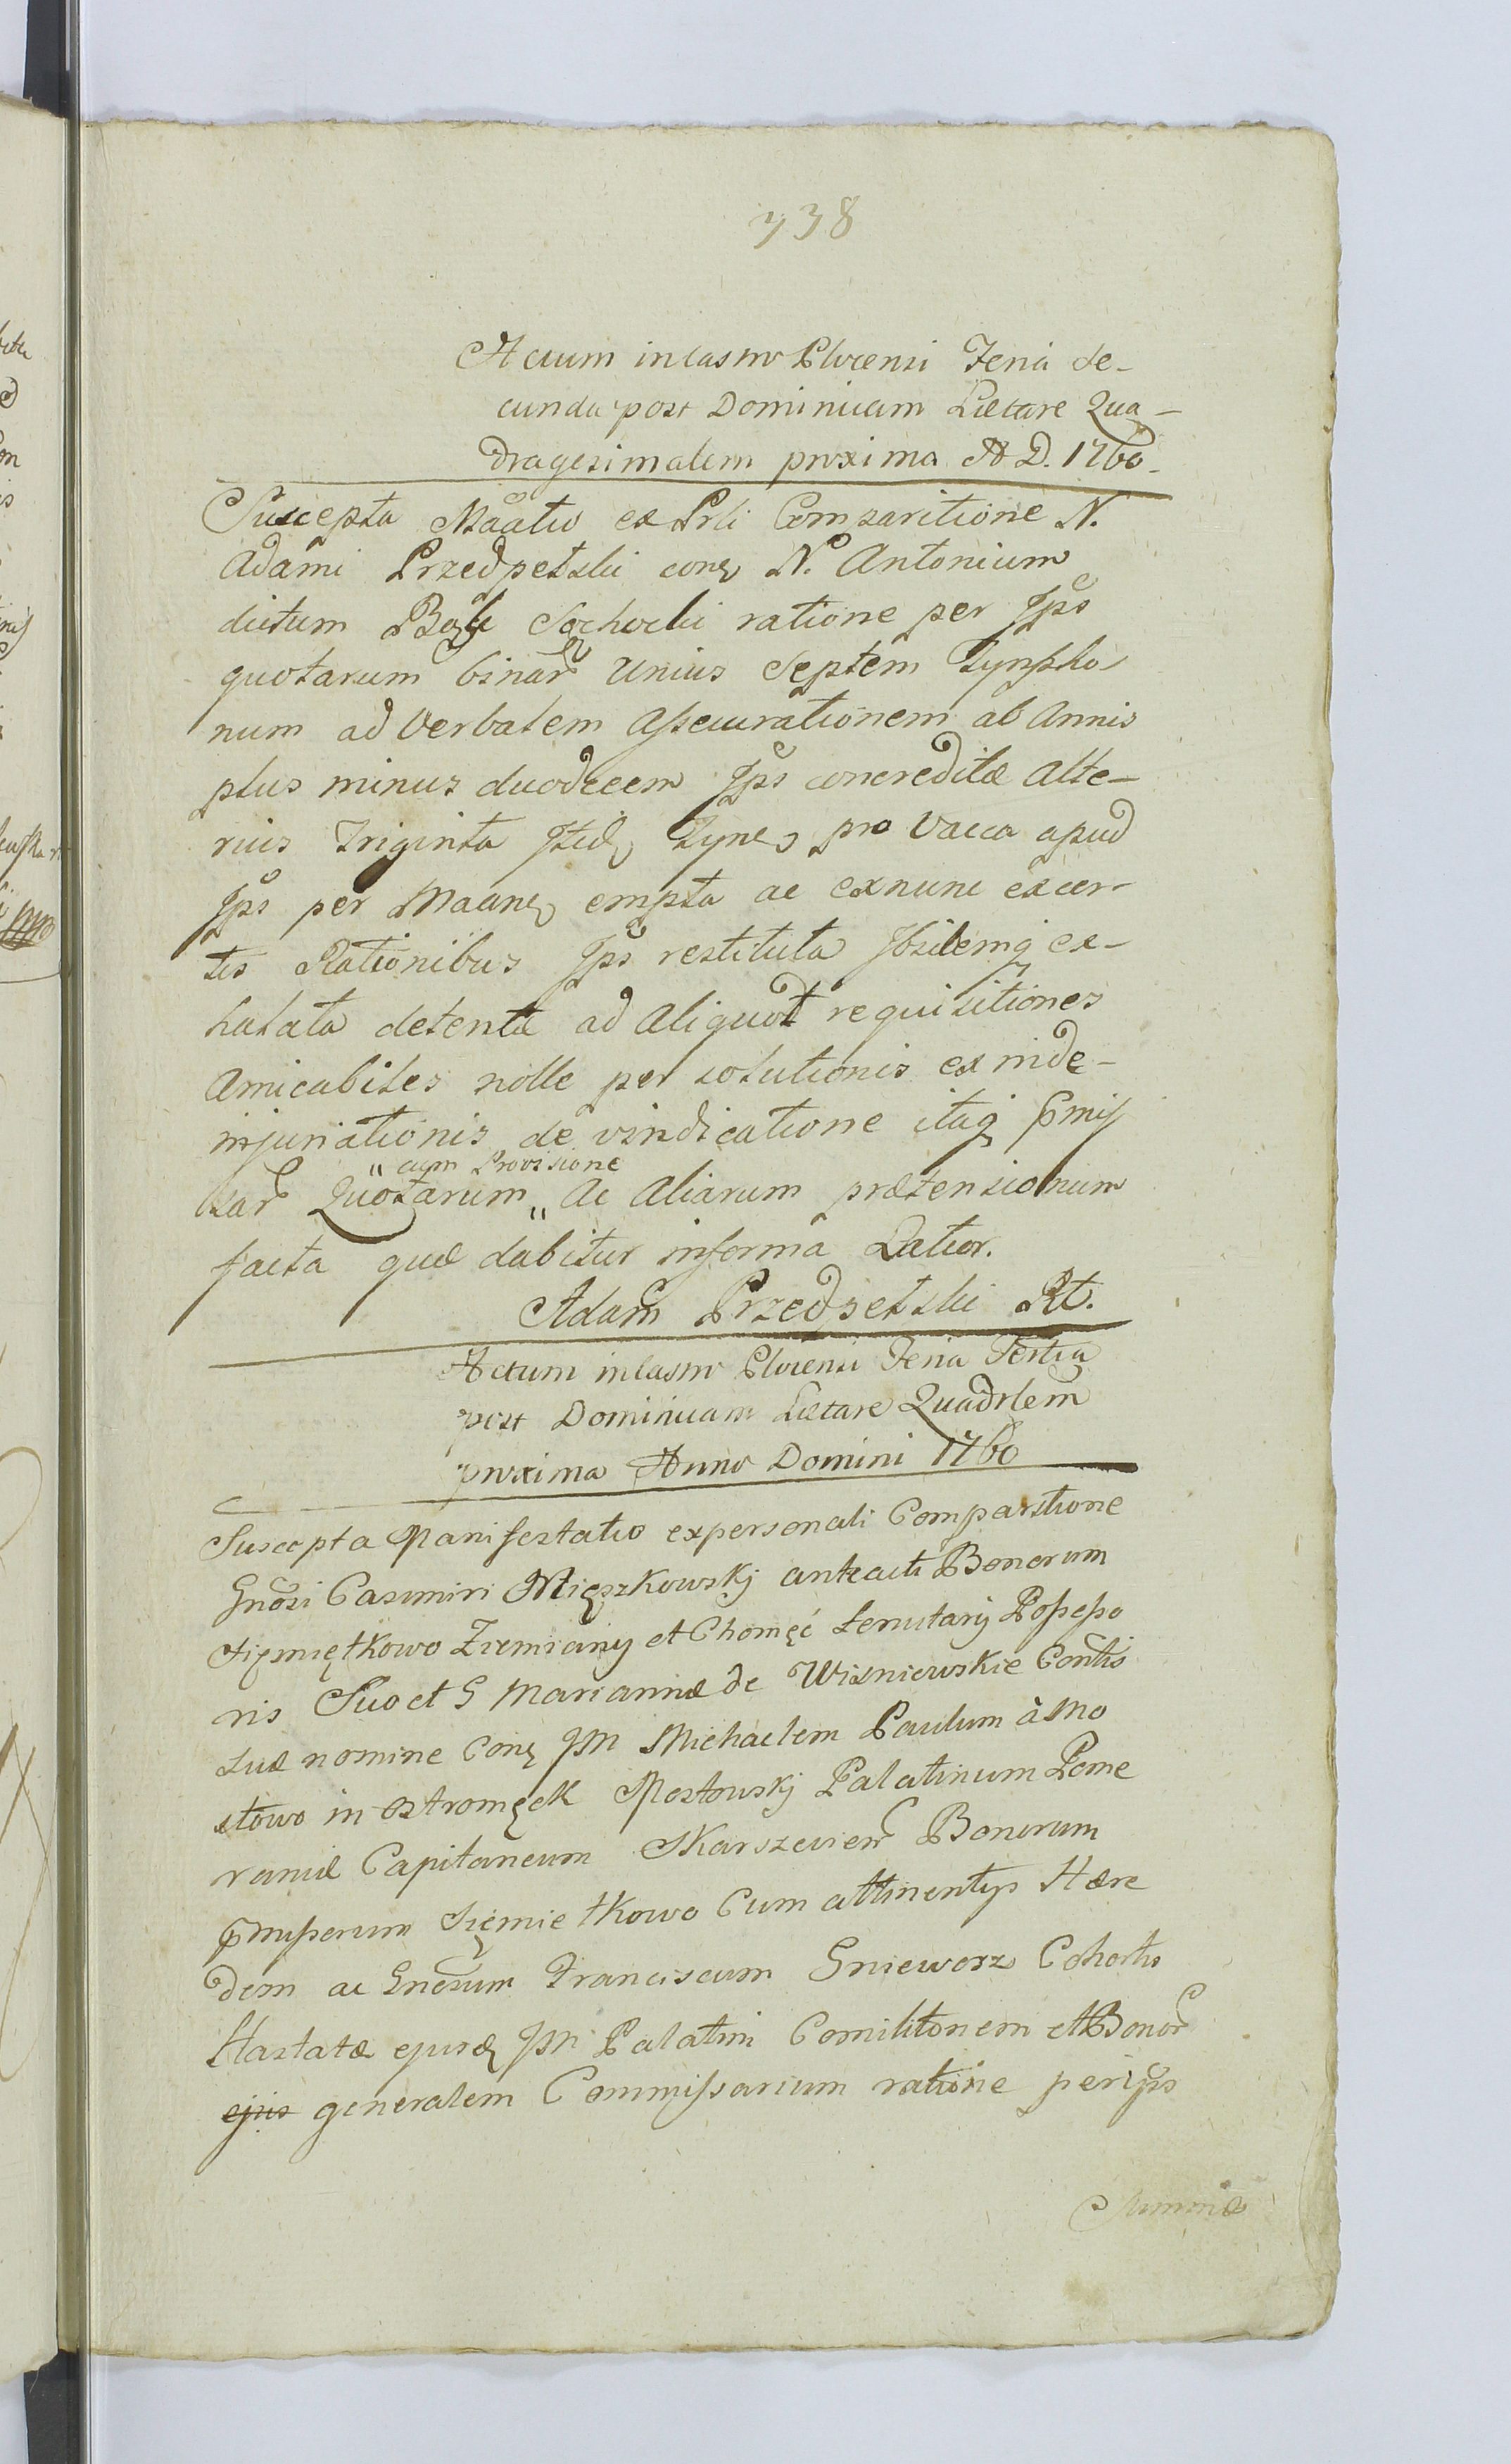 738
Actum in Castro Plocensi Feria Se-
cunda post Dominicam Lætare Qua-
dragesimalem proxima A D. 1760.
Suscepta Mãatio ex Prli Comparitione N.
Adami Przedpełski conq N. Antonium
dictum Bąk Sochocki ratione per Jps
quotarum binar Unius Septem Tynpho
num ad Verbalem Assecurationem ab Annis
plus minus duodecem Jps concreditæ Alte-
rius Triginta Jtidq Tynf pro Vacca apud
Jps per Maanq empta ac ex nunc ex cer-
tis Rationibus Jps restituta Jbidemq ex-
halata detentæ ad Aliquot requisitiones
Amicabiles nolle per solutionis ex inde-
injuriationis de vindicatione itaq pmis
sar Quotarum „ cum Provisione „ Ac Aliarum prætensionum
facta quæ dabitur in forma Latior.
Adam Przedpełski Rt.
Actum in Castro Plocensi Feria Tertia
post Dominicam Lætare Quadrlem
proxima Anno Domini 1760
Suscepta Manifestatio ex personali Comparitione
Gnosi Casimiri Mięszkowskj anteacti Bonorum
Siemiętkowo Ziemiany et Chomęć Tenutarij Possesso
ris Suo et G Mariannæ de Wisniewskie Contis
suæ nomine Conq JM Michaelem Paulum à Mo
stowo in Ostromęck Mostowskj Palatinum Pome
raniæ Capitaneum Skarszevien Bonorum
pmissorum Siemietkowo Cum attinentys Hære
dem ac Gnosum Franciscum Gniewosz Cohortis
Hastatæ ejusdq JM Palatini Comilitonem et Bonor
ejus generalem Commissarium ratione per ips
Summæ